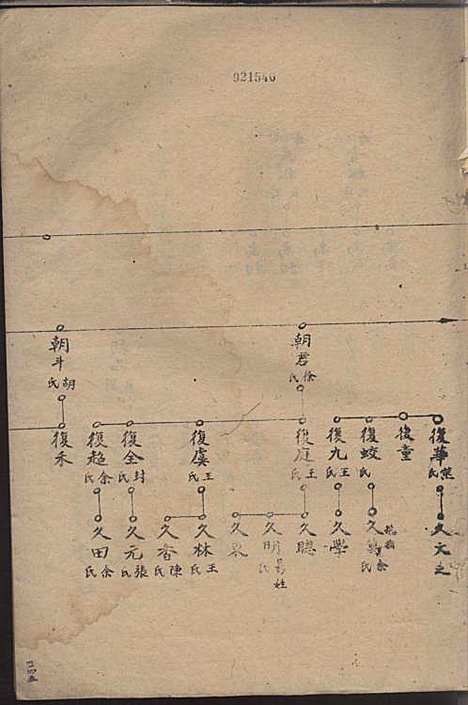 921546
朝君
徐氏
朝斗
胡氏
復華
熊氏
復童
復蛟
氏
復九
王氏
復庭
王氏
復虞
王氏
復全
封氏
復超
余氏
復禾
久文之
久
余氏
久學
久聰
久明
氏
久
久林
王氏
久香
陳氏
久元
張氏
久田
余氏